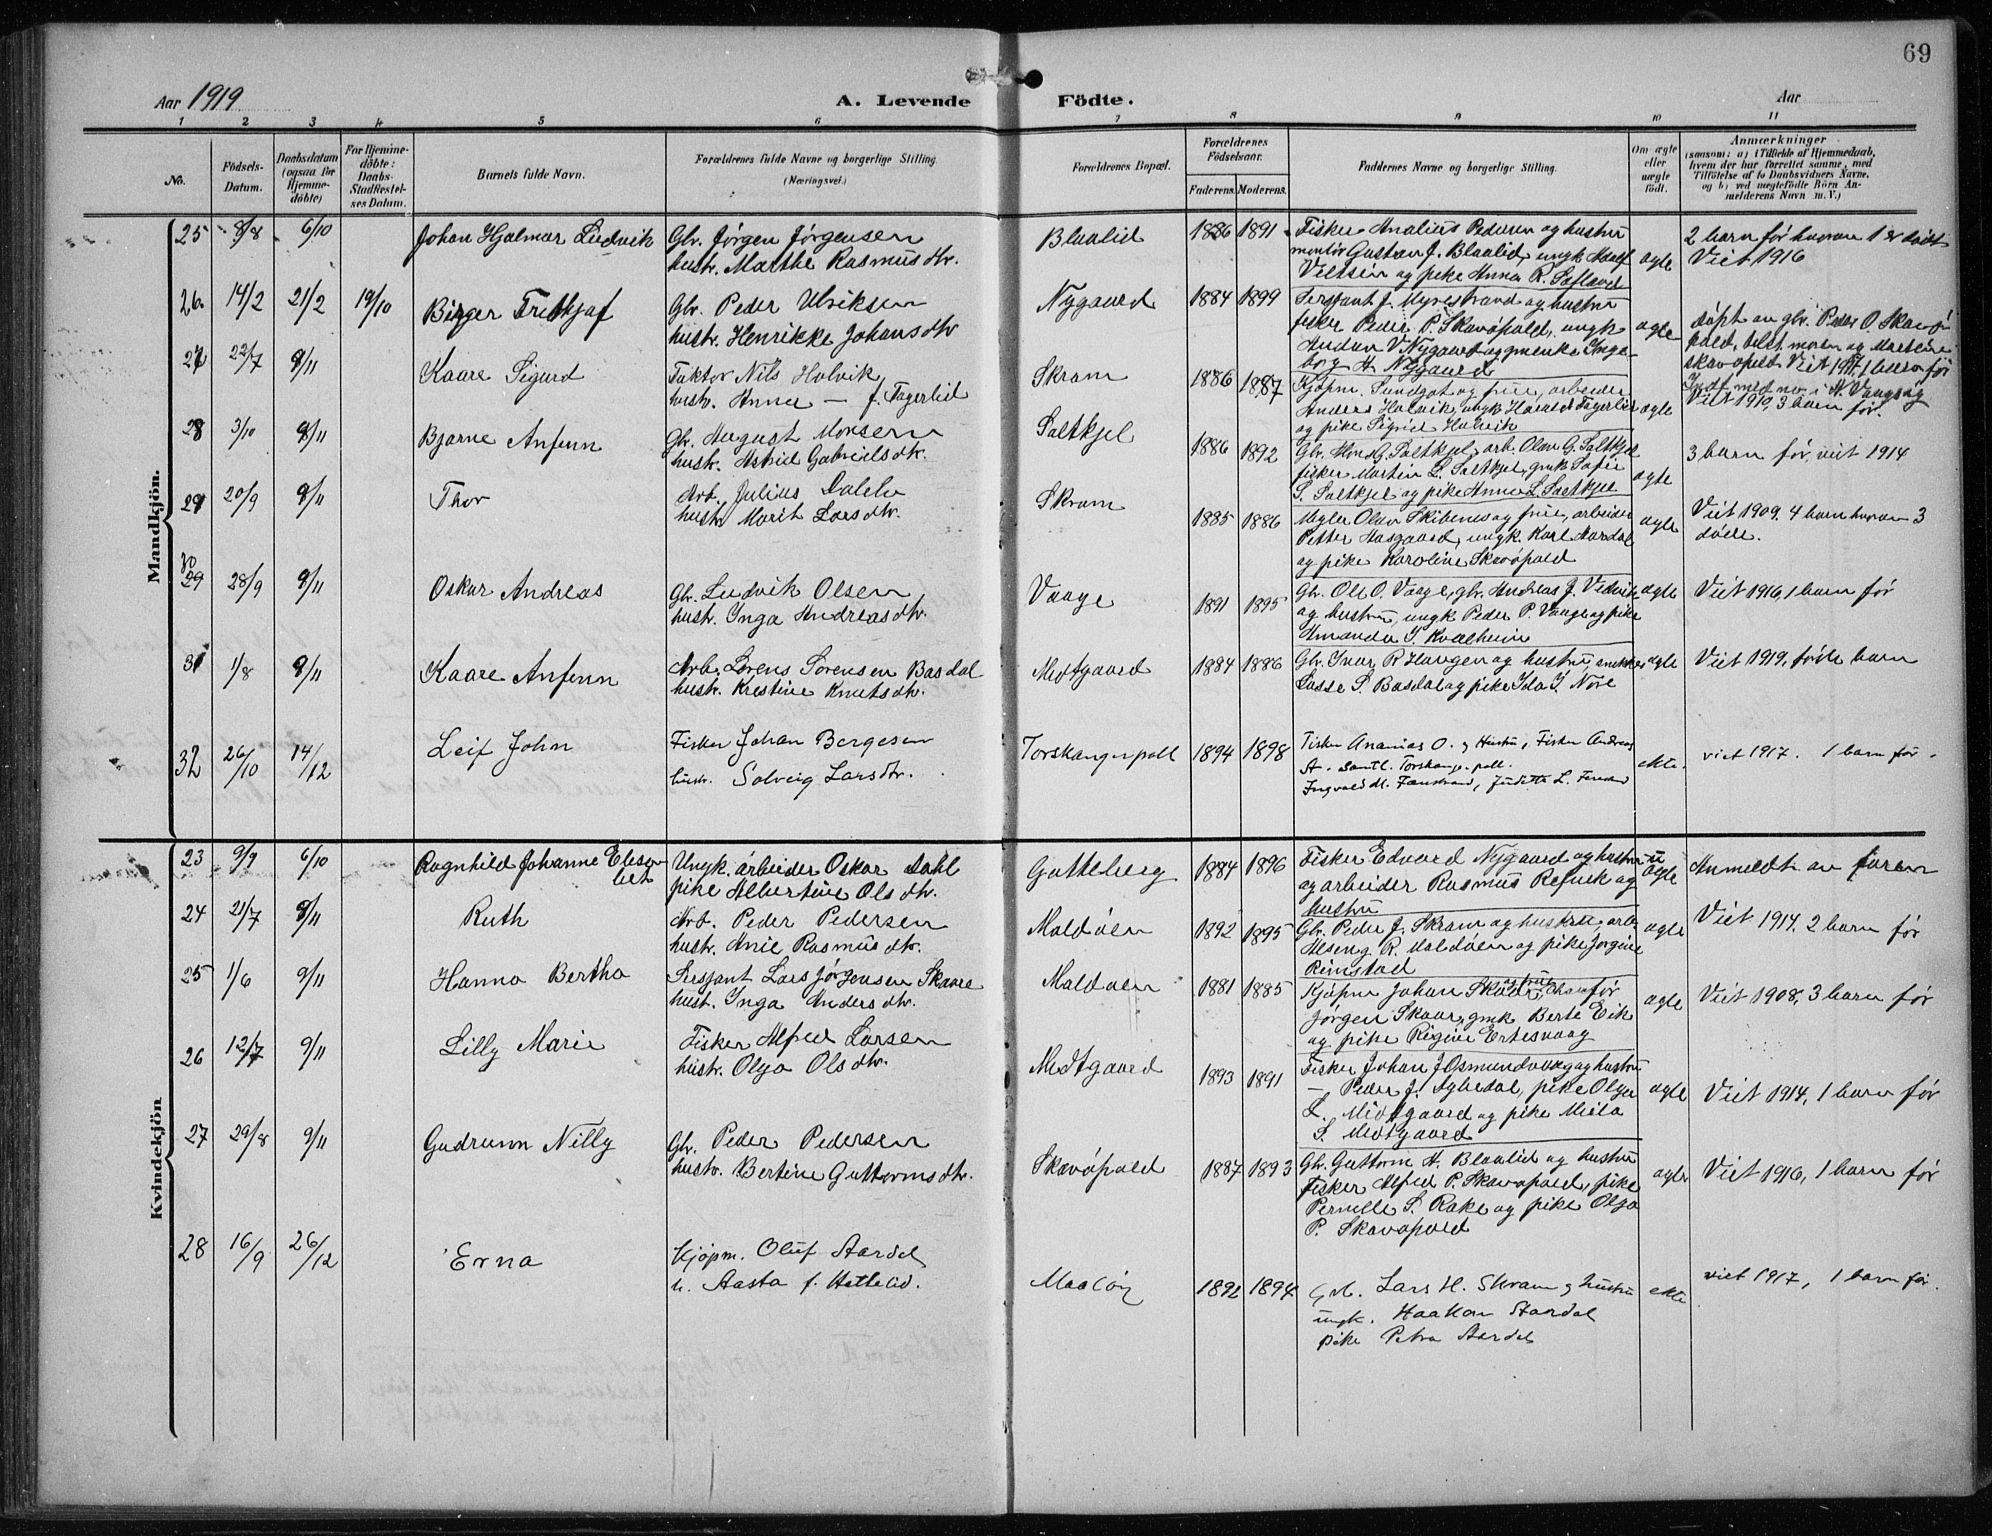 69
Aar 1919
A. Levende Födte.
Aar
1 2 3 4 5 6 7 8 9 10 11
No.
Födsels-
Datum.
Daabsdatum
(ogsaa for
Hjemme-
döbte)
For Hjemme-
döbte:
Daabs-
Stadfæstel-
ses Datum.
Barnets fulde Navn.
Forældrenes fulde Navne og borgerlige Stilling.
(Næringsvei.)
Forældrenes Bopæl.
Forældrenes
Födselsaar.
Faderens. Moderens.
Faddernes Navne og borgerlige Stilling.
Om ægte
eller
uægte
födt.
Anmærkninger
(saasom: a) i Tilfælde af Hjemmedaab,
hvem der har forrettet samme, med
Tilföielse af to Daabsvidners Navne,
og b) ved uægtefödte Börn An-
melderens Navn m. V.)
Mandkjön.
25 8/8 6/10 Johan Hjalmar Ludvik
Gbr. Jørgen Jørgensen
hustr. Marthe Rasmusdtr.
Blaalid 1886 1891
Fisker Analius Pedersen og hustru
montør Gustav J. Blaalid, ungk Adolf
og pike Anna R.
ægte
2 barn før hvorav 1 er dødt
Viet 1916
26 14/2 21/2 19/10 Birger Fritkjof
Gbr. Peder Ulriksen
hustr. Henrikke Johansdtr
Nygaard 1884 1899
Sersjant J. Myrestrand og hustru
fisker Peder P. Skavøpold, ungk
Anders V. Nygaard og enke Inge-
borg A. Nygaard
ægte
døpt av gbr. Peder O Skavø-
pold, tilst. moren og
Skavøpold. Viet 1917. 1 barn før
27 22/7 9/11 Kaare Sigurd
Faktor Nils Holvik
hustr. Anna — f. Fagerlid
Skram 1886 1887
Kjøpm. Sundgot og frue, arbeider
Anders Holvik, ungk Harald Fagerlid
og pike Sigrid Holvik
ægte
Indf. med no. i N. Vaagsøy
Viet 1910, 3 barn før.
28 3/10 9/11 Bjarne Anfinn
Gbr. August Monsen
hustr. Astrid Gabrielsdtr.
Saltkjel 1886 1892
Gbr. G. Saltkjel, arb. Olav G. Saltkjel
fisker Martin L. Saltkjel, gmk Sofie
S. Saltkjel og pike Anna L. Saltkjel
ægte
3 barn før, viet 1914
29 20/9 9/11 Thor
Arb. Julius
hustr Marit Larsdtr.
Skram 1885 1886
Megler Olav Skibenes og frue, arbeider
Petter Aasgaard, ungk. Karl Aardal
og pike Karoline Skavøpold
ægte
Viet 1909. 4 barn hvorav 3
døde.
30
29 28/9 9/11 Oskar Andreas
Gbr. Ludvik Olsen
hustr. Inga Andreasdtr.
Vaage 1891 1895
Gbr. Ole O. Vaage, gbr. Andreas J. Vedvik
og hustru, ungk Peder P. Vaage og pike
Amanda I. Kvalheim
ægte
Viet 1916, 1 barn før
31 1/8 9/11 Kaare Anfinn
Arb. Lorens Sørensen Basdal
hustr. Kristine Knutsdtr.
Medtgaard 1884 1886
Gbr. Ivar R Haugen og hustru, snekker
Lasse S. Basdal og pike Ida I. Nore
ægte
Viet 1919, føde barn
32 26/10 14/12 Leif John
Fisker Johan Bergesen
hustr. Solveig Larsdtr.
Torskangerpoll 1894 1898
Fisker Ananias O. og Hustru, Fisker Andreas
A. samtl. Torskange poll.
Ingvald M. , Juditta L.
ekte.
viet 1917. 1 barn før.
Kvindekjön
23 9/9 6/10 Ragnhild Johanne Elesa-
bet
Ungk. arbeider Oskar Dahl
pike Albertine Olsdtr.
Gotteberg 1884 1896
Fisker Edvard Nygaard og hustru
og arbeider Rasmus Refvik og
hustru
u
ægte
Anmeldt av faren
24 21/7 9/11 Ruth
Arb. Peder Pedersen
hustr. Anie Rasmusdtr.
Maldøen 1892 1895
Gbr. Peder J. Skram og hustru, arb.
R. Maldøen og pike Jorgine
Rimstad
ægte
Viet 1914. 2 barn før
25 1/6 9/11 Hanna Bertha
Sersjant Lars Jørgensen Skaare
hust. Inga Andersdtr.
Maldøen 1881 1885
Kjøpm Johan
Jørgen Skaar, gmk Berte Eik
og pike Regine Ertesvaag
ægte
Viet 1908, 3 barn før
26 12/7 9/11 Lilly Marie
Fisker Alfred Larsen
hustr. Olga Olsdtr.
Medtgaard 1893 1891
Fisker Johan J Osmundsvaag og hustru
— Peder J. , pike Olga
L. Midtgaard og pike
S. Medtgaard
ægte
Viet 1914, 1 barn før
27 29/8 9/11 Gudrunn Nilly
Gbr. Peder Pedersen
hustr. Bertine Guttormsdtr.
Skavøpold 1887 1893
Gbr. Guttorm A. Blaalid og hustru
Fisker Alfred P. Skavøpold, pike
Pernille S. Rake og pike Olga
P. Skavøpold
ægte
Viet 1916, 1 barn før
28 16/9 26/12 Erna
Kjøpm. Oluf Aardal
h. Aasta f.
Maaløy 1892 1894
Gbr. Lars H. Skram og hustru
ungk. Haakon Aardal
pike Petra Aardal
ekte
viet 1917, 1 barn før.